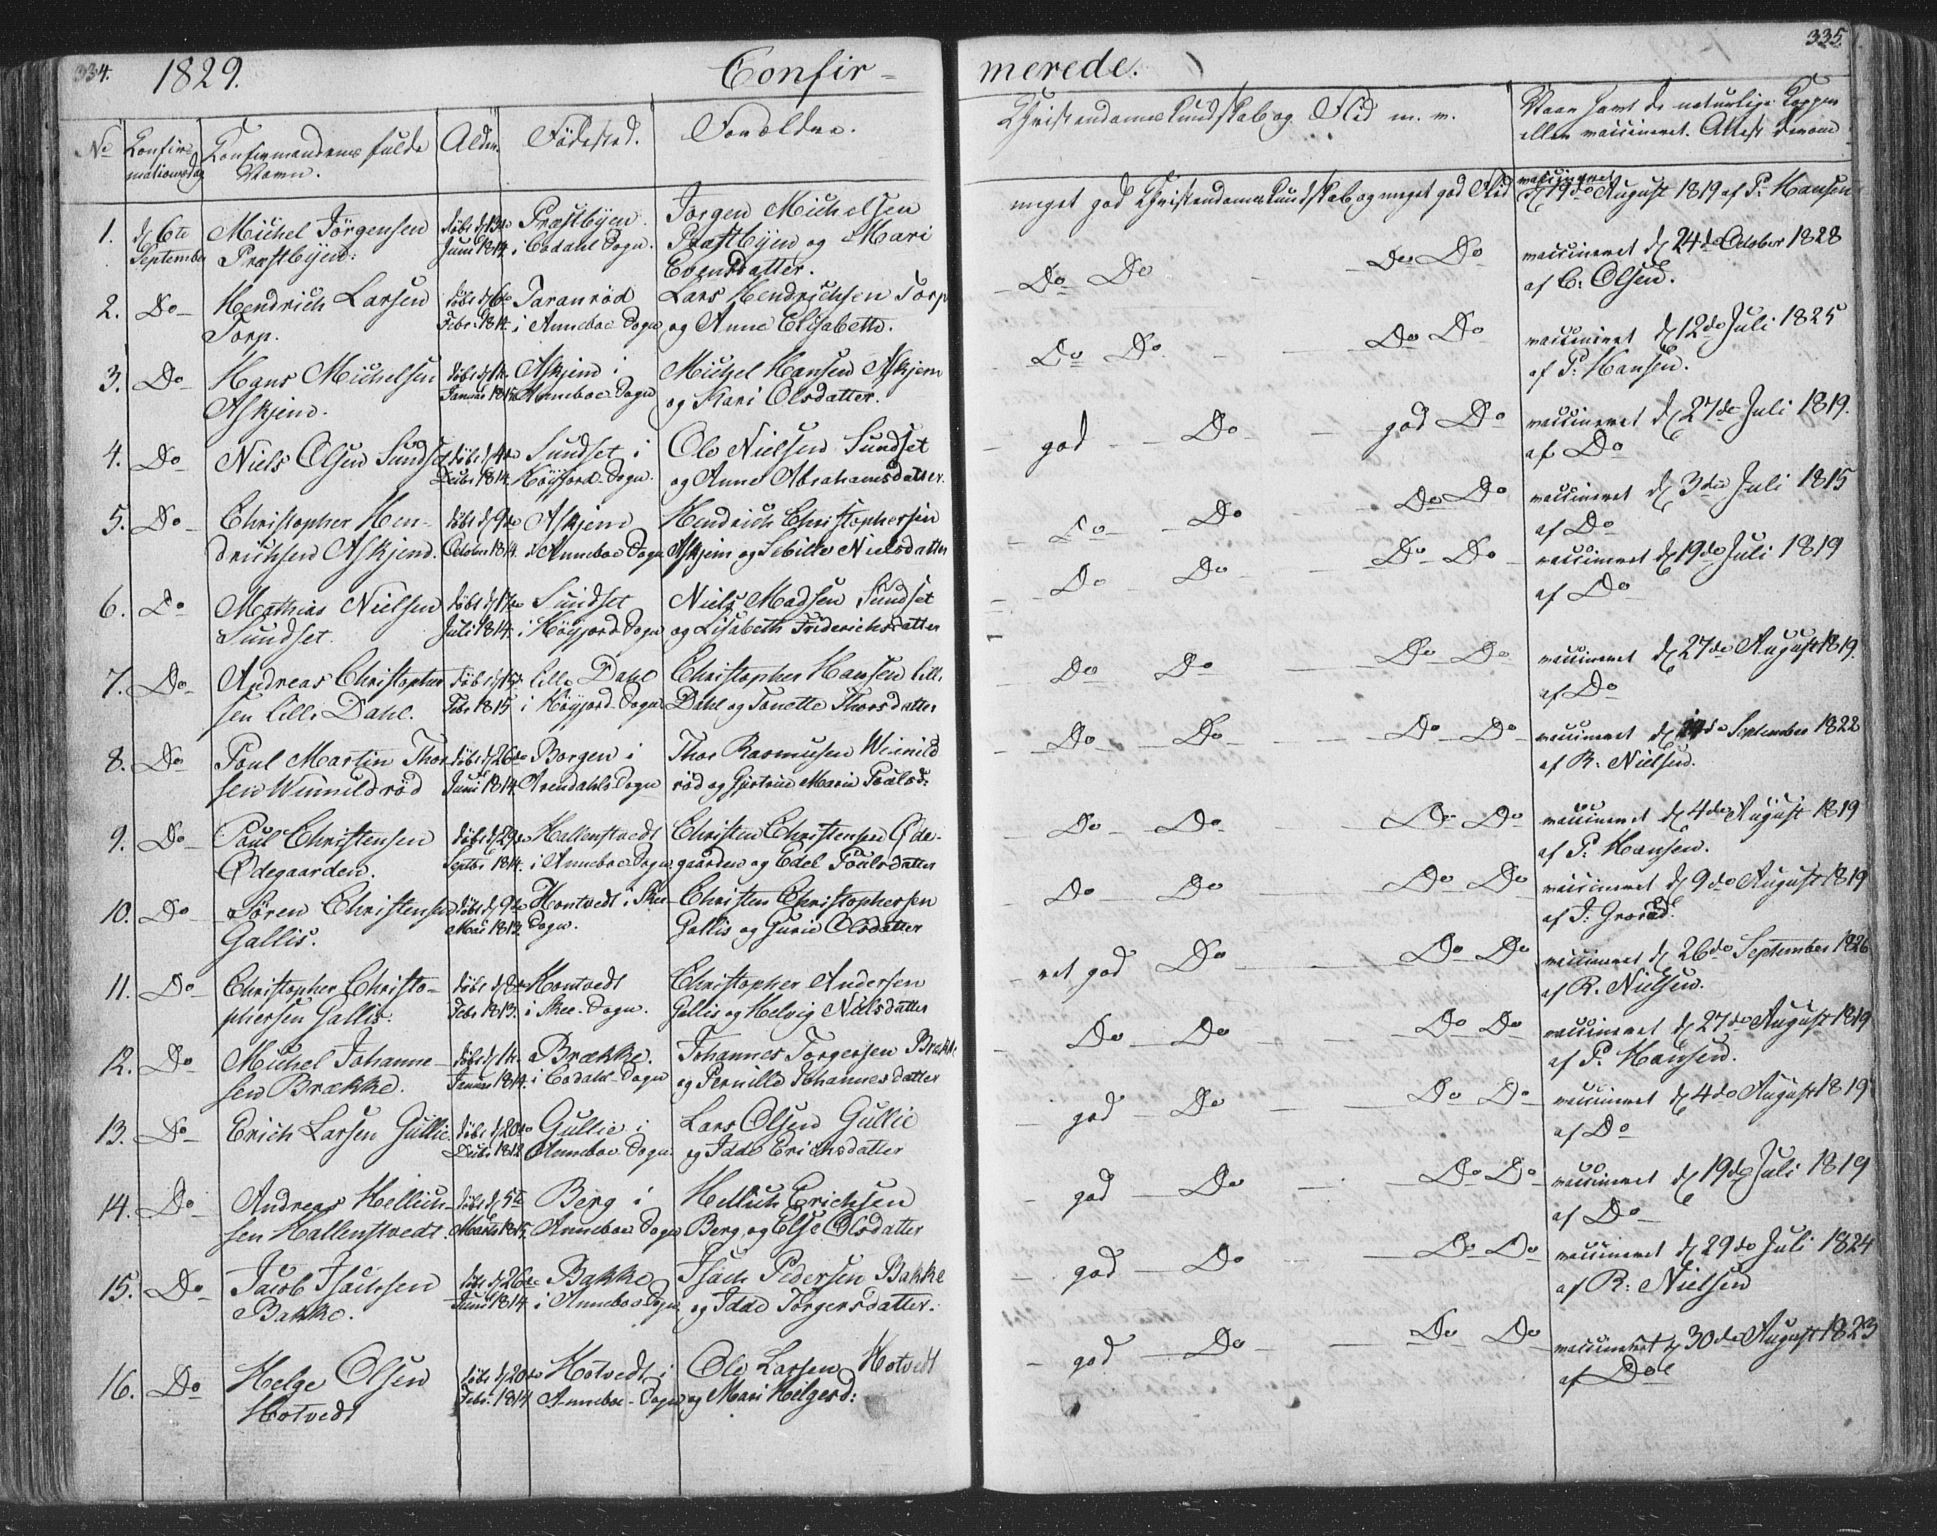 334.
1829.
Confir-
No
Konfir-
mationsdag
Konfirmandens fulde
Navn.
Alder.
Fødested.
Forældre.
1.
d. 6te
September
Michel Jörgensen
Præstbÿen.
døbt d. 13de
Juni 1814.
Præstbÿen
i Codahl Sogn.
Jørgen Michelsen
Præstbÿen og Mari
Evensdatter.
2.
Do
Hendrich Larsen
Torp.
døbt d. 6te
Febr. 1814.
Taranrød
i Anneboe Sogn
Lars Hendrichsen Torp
og Anne Elisabeth.
3.
Do
Hans Michelsen
Askjem.
døbt d. 1te
Januar 1815
Askjem i
Anneboe Sogn
Michel Hansen Askjem
og Kari Olsdatter.
4.
Do
Niels Olsen Sundset
døbt d. 4de
Decbr 1814.
Sundset i
Höÿjord-Sogn.
Ole Nielsen Sundset
og Anne Abrahamsdatter.
5.
Do
Christopher Hen-
drichsen Askjem.
døbt d. 9de
October 1814.
Askjem
i Anneboe Sogn
Hendrich Christophersen
Askjem og Sebille Nielsdatter
6.
Do
Mathias Nielsen
Sundset.
døbt d. 17de
Juli 1814.
Sundset
i Höÿjord-Sogn
Niels Madsen Sundset
og Lisabeth Friderichsdatter
7.
Do
Andreas Christopher
sen Lille Dahl.
døbt d. 15de
Febr 1815
Lille Dahl
i Höÿjord-Sogn
Christopher Hansen Lille
Dahl og Tonette Thorsdatter
8.
Do
Poul Martin Thor
sen Winnildrød
døbt d. 26de
Juni 1814.
Borgen i
Arendahls Sogn
Thor Rasmusen Winnild
rød og Gjertrue Marie Poulsd:
9.
Do
Poul Christensen
Ødegaarden.
døbt d. 29de
Septbr 1814.
Hallenstvedt
i Anneboe Sogn
Christen Christensen Øde-
gaarden og Edel Poulsdatter
10.
Do
Søren Christensen
Gallis.
døbt d. 9de
Mai 1813.
Hontvedt i Skee-
Sogn.
Christen Christophersen
Gallis og Gurie Olsdatter
11.
Do
Christopher Christo-
phersen Gallis.
døbt d. 8de
Febr 1813.
Hontvedt
i Skee-Sogn.
Christopher Andersen
Gallis og Helvig Nielsdatter
12.
Do
Michel Johanne-
sen Brække.
døbt d. 1te
Januar 1814.
Brække.
i Codahl-Sogn
Johannes Torgersen Brække
og Pernille Johannesdatter
13.
Do
Erich Larsen Gullie
døbt d. 20de
Decbr 1812
Gullie i
Anneboe Sogn.
Lars Olsen Gullie
og Idde Erichsdatter
14.
Do
Andreas Hellich-
sen Hallenstvedt.
døbt d. 5te
Marts 1815
Berg i
Anneboe Sogn
Hellich Erichsen
Berg og Else Olsdatter
15.
Do
Jacob Isachsen
Bakke.
døbt d. 26de
Juni 1814.
Bakke
i Anneboe Sogn.
Isach Pedersen Bakke
og Idde Torgersdatter.
16.
Do
Helge Olsen
Hotvedt
døbt d. 20de
Febr. 1814
Hotvedt i
Anneboe-Sogn
Ole Larsen Hotvedt
og Mari Helgesd:
335.
merede.
Christendomskundskab og Flid m. v.
Naar havt de naturlige Kopper
eller vaccineret. Attest derom
meget god Christendomskundskab og meget god Flid
vaccineret
d. 19de August 1819 af P. Hansen
Do Do Do Do
vaccineret d. 24de October 1828
af C. Olsen.
Do Do Do Do
vaccineret d. 12de Juli 1825
af P. Hansen.
god Do god Do
vaccineret d. 27de Juli 1819.
af Do
Do Do Do Do
vaccineret d. 3die Juli 1815
af Do
Do Do Do Do
vaccineret d. 19de Juli 1819
af Do
Do Do Do Do
vaccineret d. 27de August 1819.
af Do
Do Do Do Do
vaccineret d. September 1822
af R. Nielsen.
Do Do Do Do
vaccineret d. 4de August 1819
af P. Hansen.
Do Do Do Do
vaccineret d. 9de August 1819
af J. Grorud.
ret god Do Do Do
vaccineret d. 26de September 1826
af R. Nielsen.
Do Do Do Do
vaccineret d. 27de August 1819
af P. Hansen.
god Do Do Do
vaccineret d. 4de August 1819
af Do
god Do Do Do
vaccineret d. 19de Juli 1819
af Do
god Do Do Do
vaccineret d. 29de Juli 1824
af R. Nielsen
god Do Do Do
vaccineret d. 30de August 1823
af Do